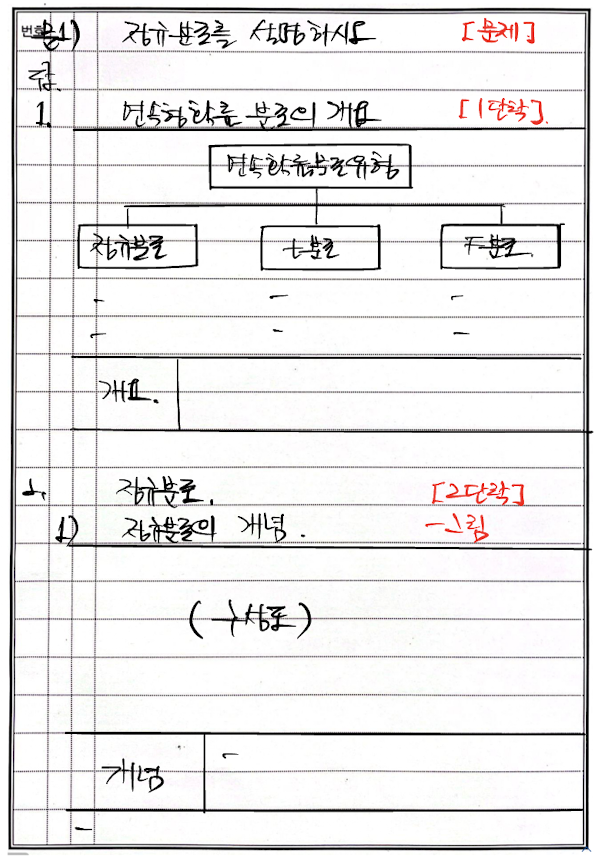 번호 문1) 정규분포를 설명하시오 [문제]
답.
1. 연속형확률 분포의 개요 [1단락].
연속확률분포유형
정규분포 t-분포 F-분포.
- - -
- - -
개요.
2. 정규분포. [2단락]
1) 정규분포의 개념. -그림
(구상도)
개념 -
-